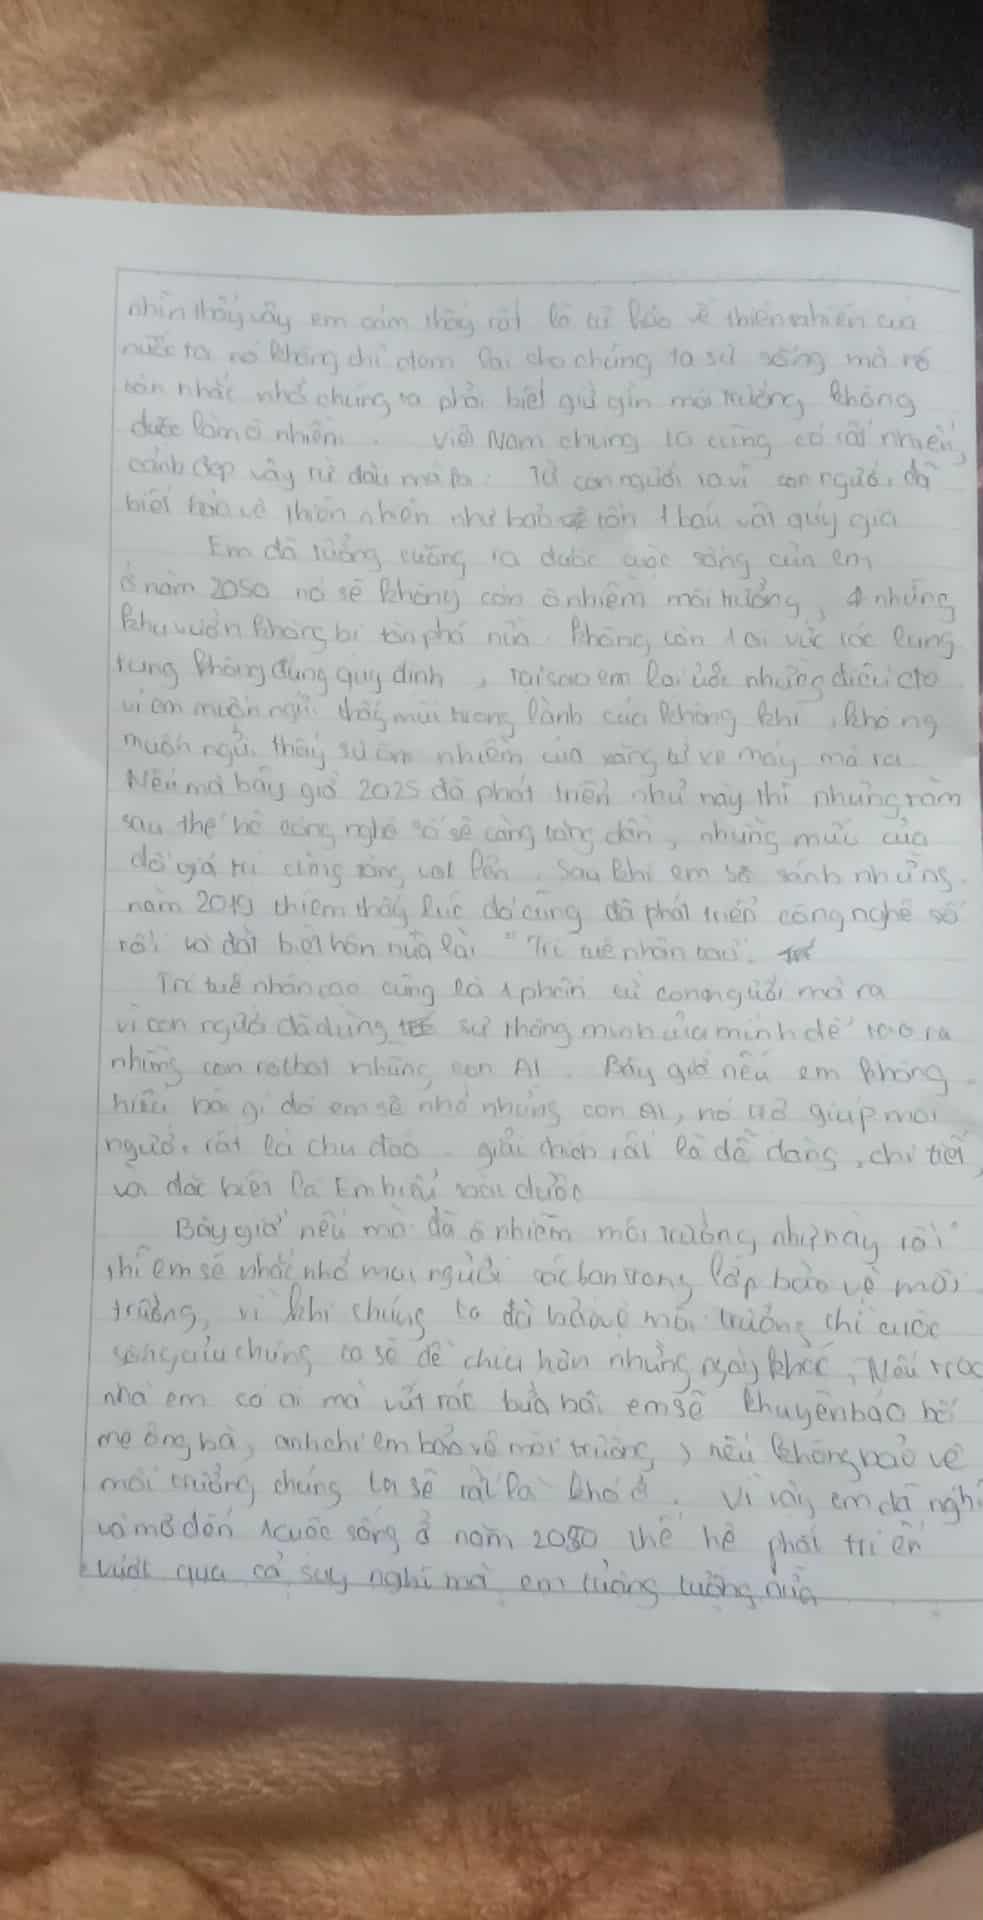 nhìn thấy vậy em cảm thấy rất là tự hào về thiên nhiên của
nước ta nó không chỉ đem lại cho chúng ta sự sống mà nó
còn nhắc nhở chúng ta phải biết giữ gìn môi trường không
được làm ô nhiễm. Việt Nam chúng ta cũng có rất nhiều
cảnh đẹp vậy từ đâu mà ra. Từ con người ra vì con người đã
biết bảo vệ thiên nhiên như bảo tồn 1 báu vật quý giá
Em đã tưởng tượng ra được cuộc sống của em
ở năm 2050 nó sẽ không còn ô nhiễm môi trường, những
khu vườn không bị tàn phá nữa. không còn vức rác lung
tung không đúng quy định, tại sao em lại ước những điều đó
vì em muốn ngửi thấy mùi trong lành của không khí, không
muốn ngửi thấy sự ôm nhiễm của xăng từ xe máy mà ra
Nếu mà bây giờ 2025 đã phát triển như này thì những năm
sau thế hệ công nghệ số sẽ càng tăng dần, những mức của
đồ giá trị cũng tăng vọt lên. Sau khi em so sánh những
năm 2019 thì em thấy lúc đó cũng đã phát triển công nghệ số
rồi và đặt biệt hơn nữa là "Trí tuệ nhân tạo".
Trí tuệ nhân tạo cũng là 1 phần từ con người mà ra
vì con người đã dùng sự thông minh của mình để tạo ra
những con rotbot những con AI. Bây giờ nếu em không
hiểu bài gì đó em sẽ nhờ những con AI, nó giúp mọi
người rất là chu đáo. giải thích rất là dễ dàng, chi tiết
và đặc biệt là Em hiểu bài được
Bây giờ nếu mà đã ô nhiễm môi trường như này rồi
thì em sẽ nhắc nhở mọi người các bạn trong lớp bảo vệ môi
trường, vì khi chúng ta đã bảo vệ môi trường thì cuộc
sống của chúng ta sẽ dễ chịu hơn những ngày khác, Nếu trog
nhà em có ai mà vứt rác bừa bãi em sẽ khuyên bảo bố
mẹ ông bà, anh chị em bảo vệ môi trường, nếu không bảo vệ
môi trường chúng ta sẽ rất là khó ở. Vì vậy em đã nghĩ
và mơ đến 1 cuộc sống ở năm 2050 thế hệ phát triển
vượt qua cả suy nghĩ mà em tưởng tượng nữa